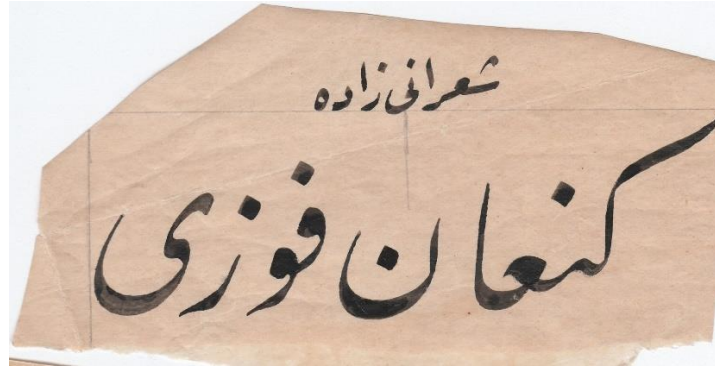 شعرانی زاده
کنعان فوزی